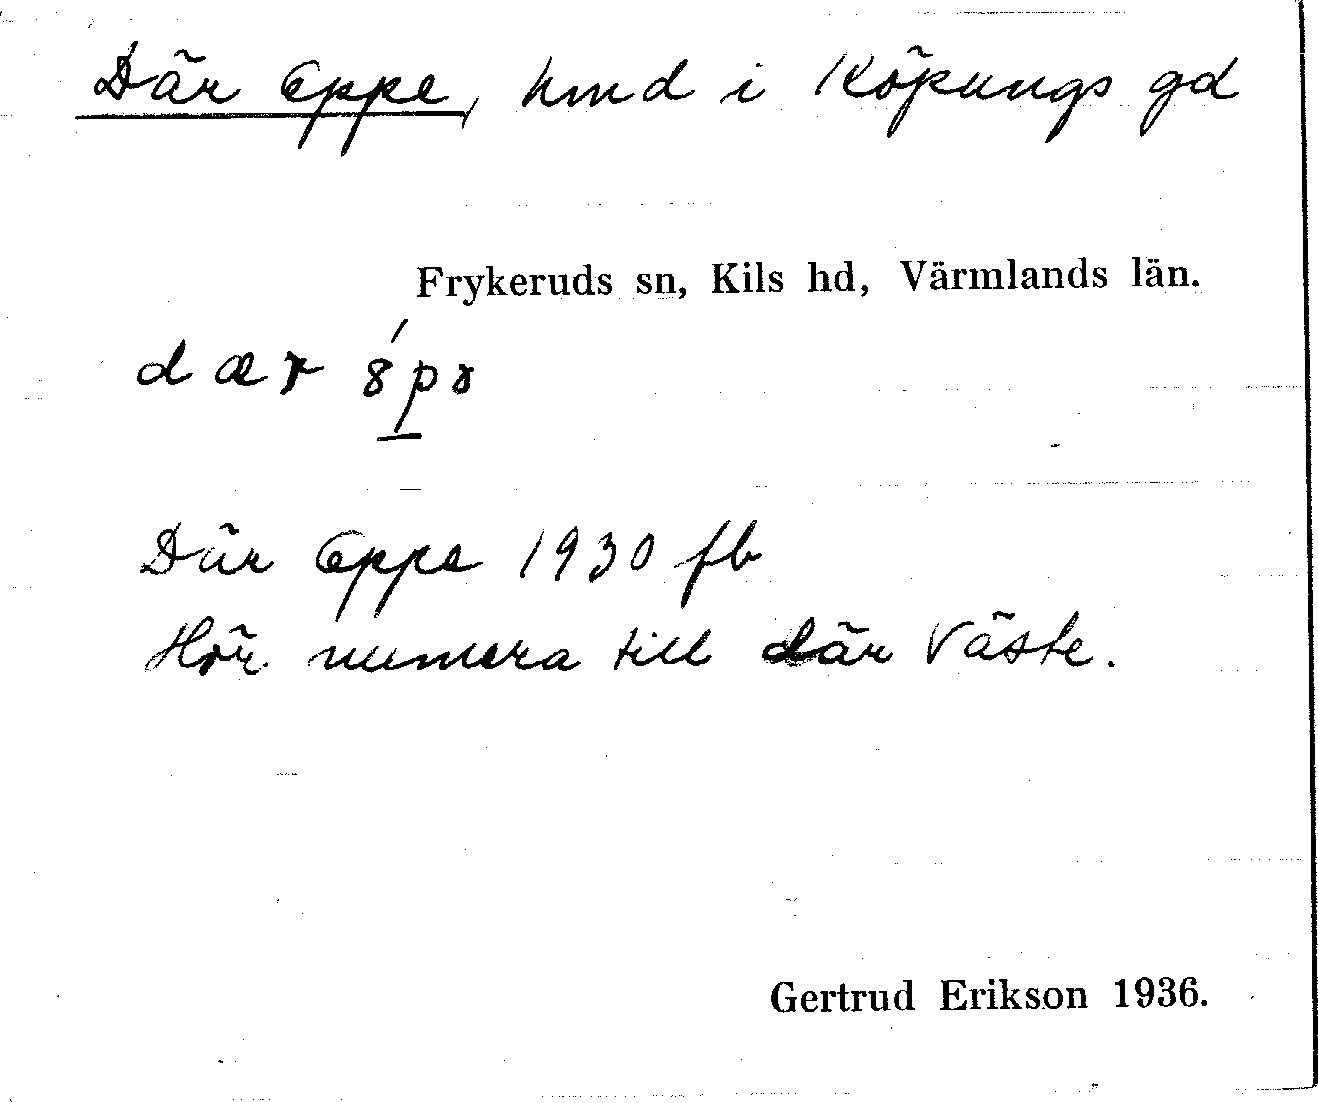 Där Eppe, hmd i Köpungs gd
Frykeruds sn, Kils hd, Värmlands län.
Där Eppe 1930 fb
Hör numera till där Väste.
Gertrud Erikson 1936.